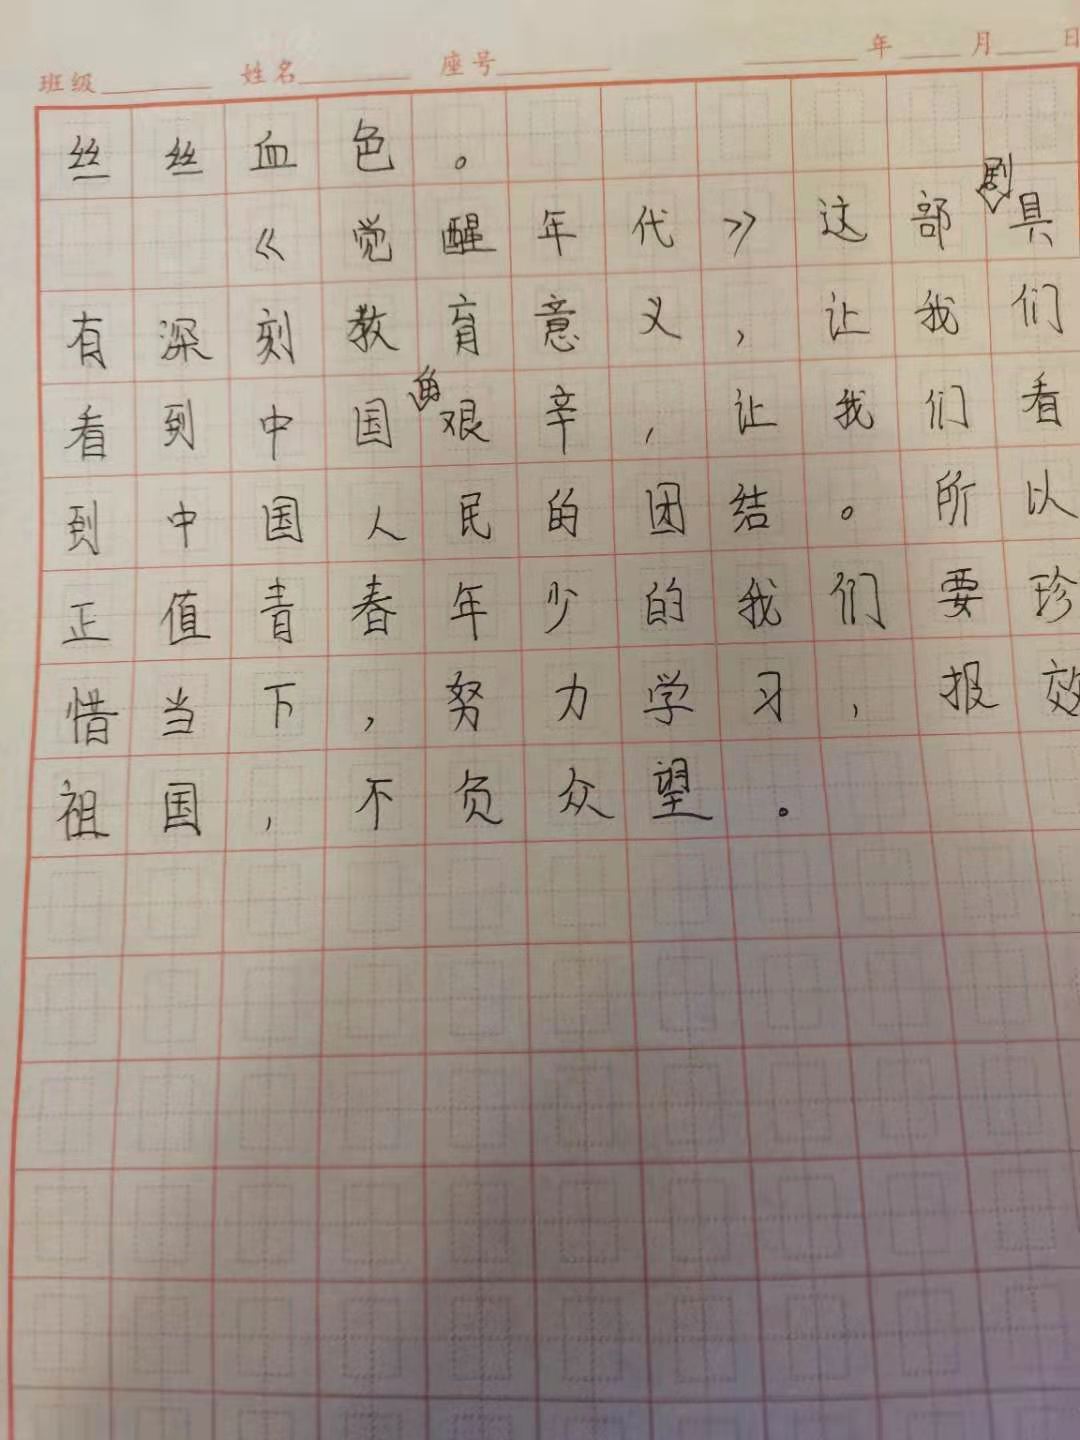 班级 姓名 座号 年 月 日
丝丝血色。
《觉醒年代》这部剧具
有深刻教育意义,让我们
看到中国的艰辛,让我们看
到中国人民的团结。所以
正值青春年少的我们要珍
惜当下,努力学习,报效
祖国,不负众望。